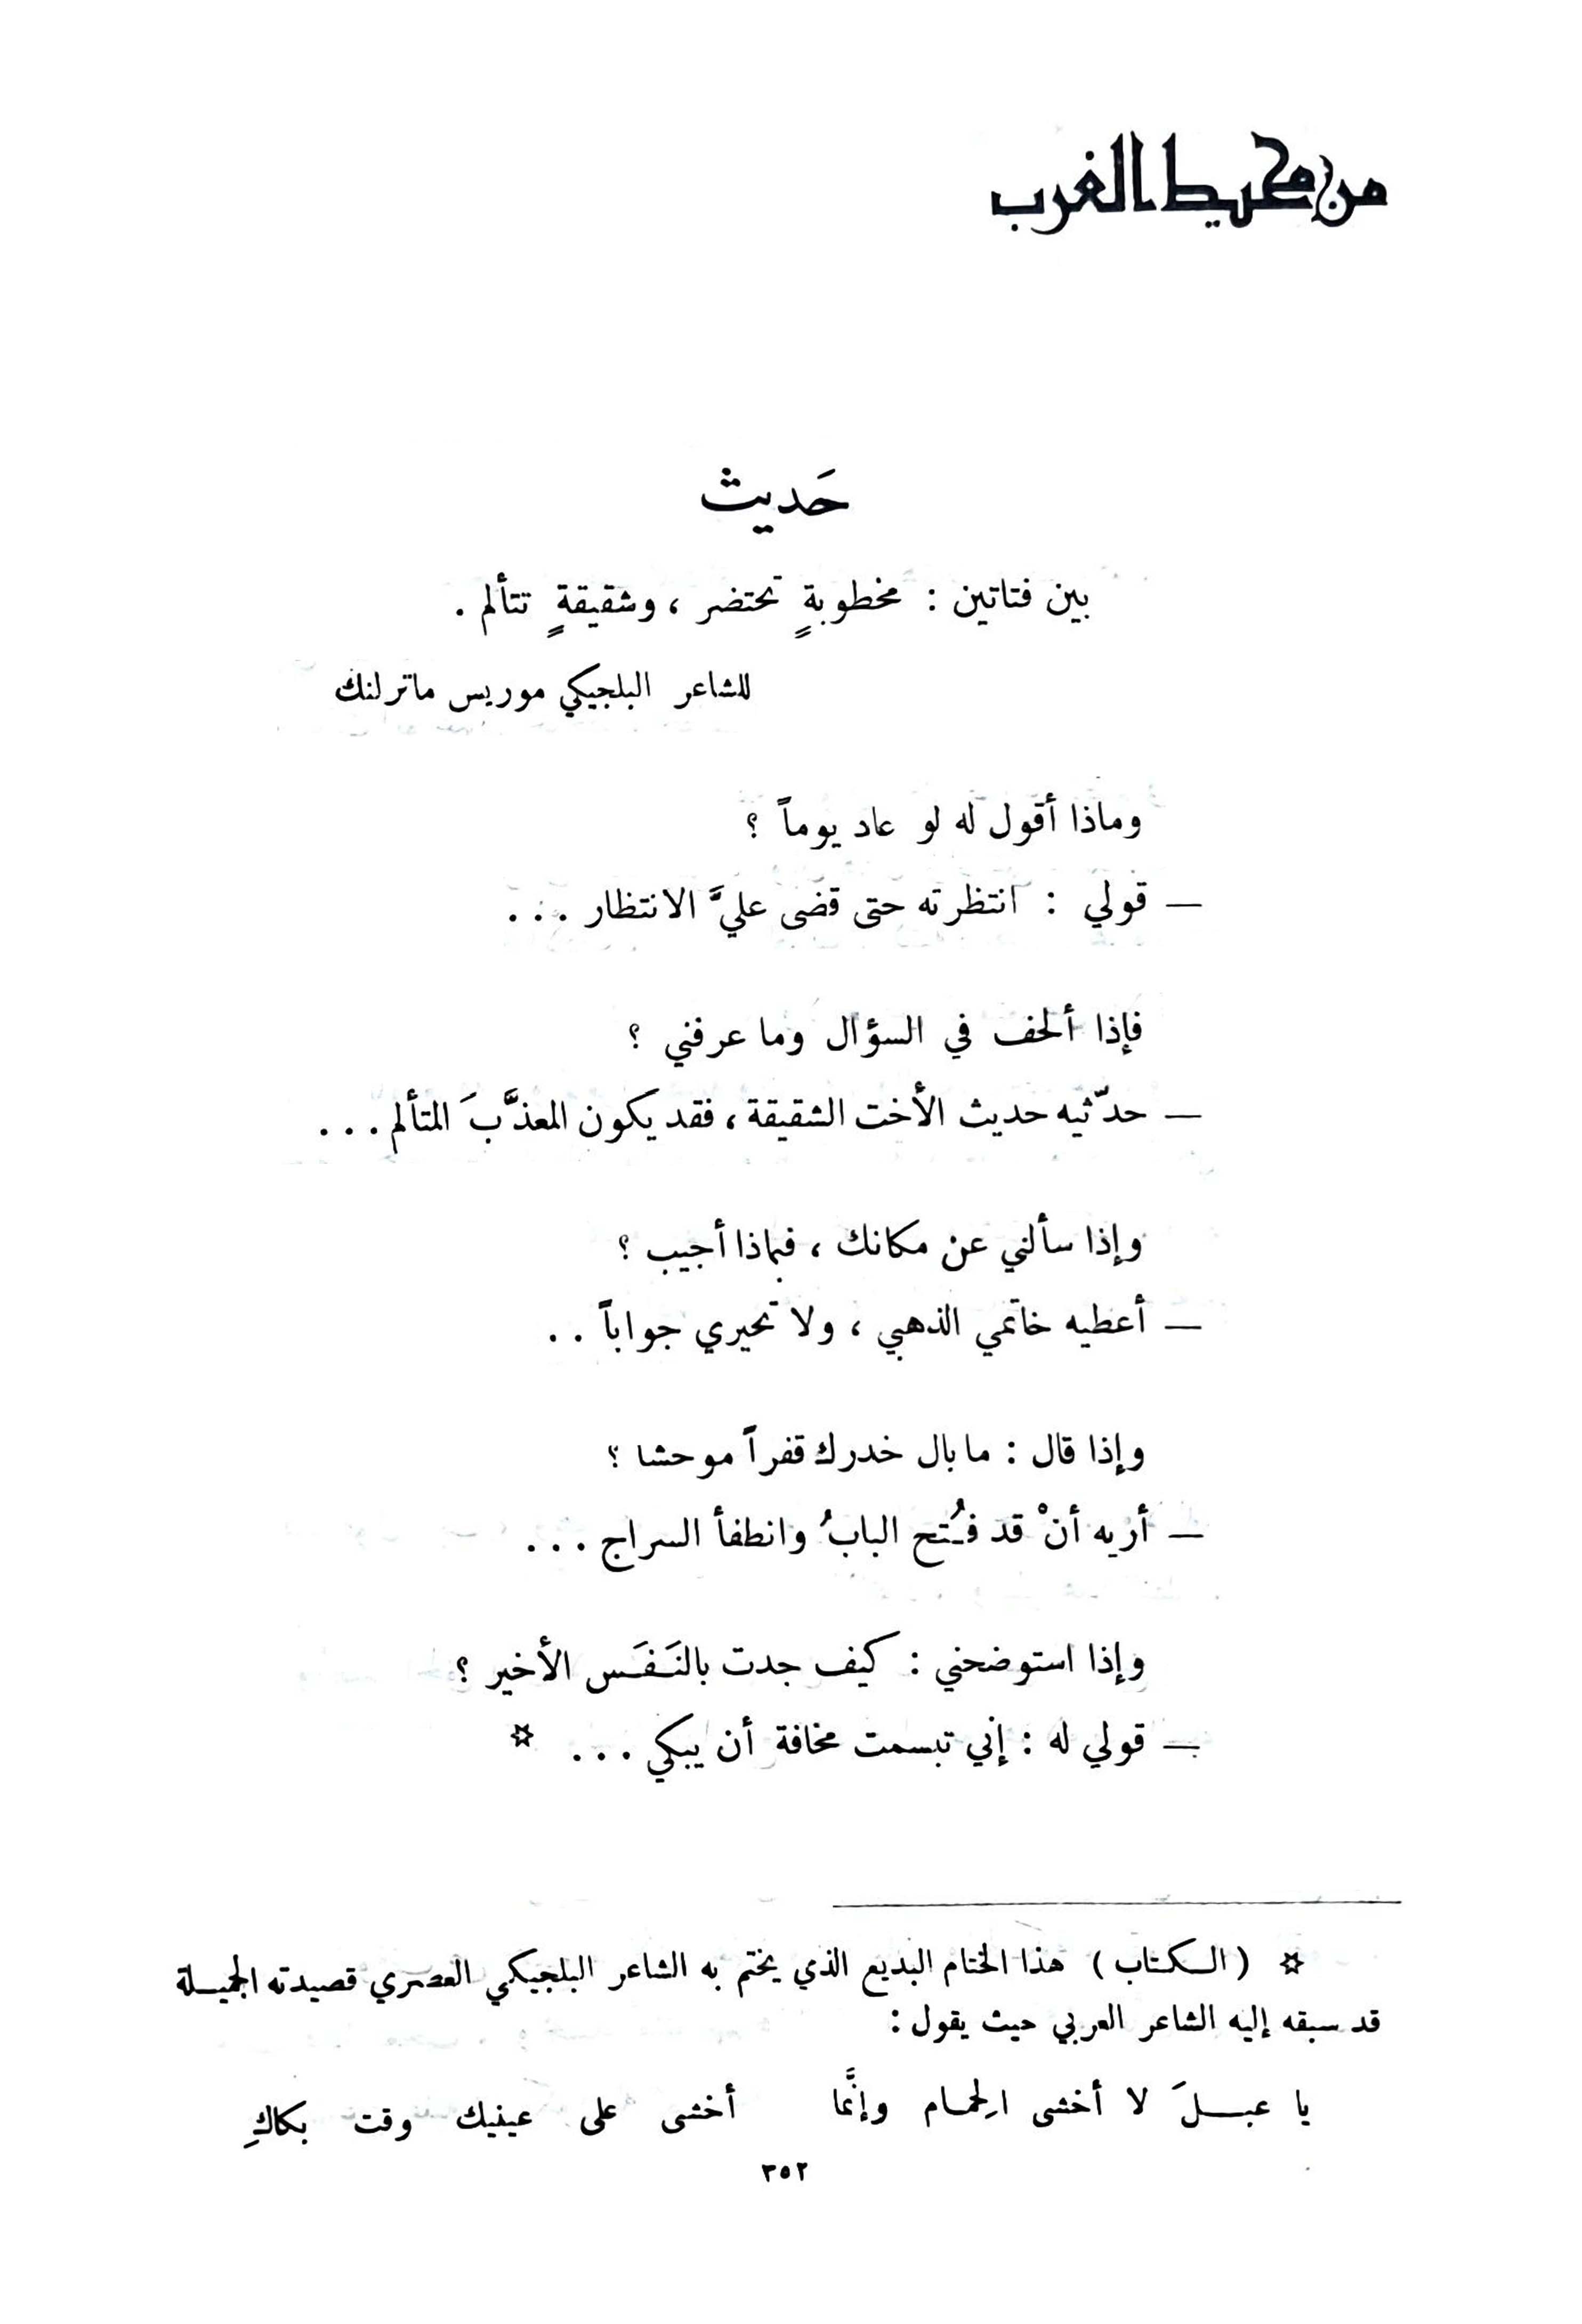 من محيط الغرب
حَديث
بين فتاتين : مخطوبةٍ تحتضر ، وشقيقةٍ تتألم .
للشاعر البلجيكي موريس ماترلنك
وماذا أقول له لو عاد يوماً ؟
— قولي : انتظرته حتى قضى عليَّ الانتظار ...
فإذا ألحف في السؤال وما عرفني ؟
— حدّثيه حديث الأخت الشقيقة ، فقد يكون المعذَّبَ المتألم ...
وإذا سألني عن مكانك ، فبماذا أجيب ؟
— أعطيه خاتمي الذهبي ، ولا تحيري جواباً ..
وإذا قال : ما بال خدرك قفراً موحشا ؟
— أريه أنْ قد فُتح البابُ وانطفأ السراج ...
وإذا استوضحني : كيف جدت بالنَفَس الأخير ؟
— قولي له : إني تبسمت مخافة أن يبكي ... ☆
☆ (الكتاب) هذا الختام البديع الذي يختم به الشاعر البلجيكي العصري قصيدته الجميلة
قد سبقه إليه الشاعر العربي حيث يقول :
يا عبلَ لا أخشى الحِمام وإنَّما أخشى على عينيك وقت بكاكِ
٣٥٢